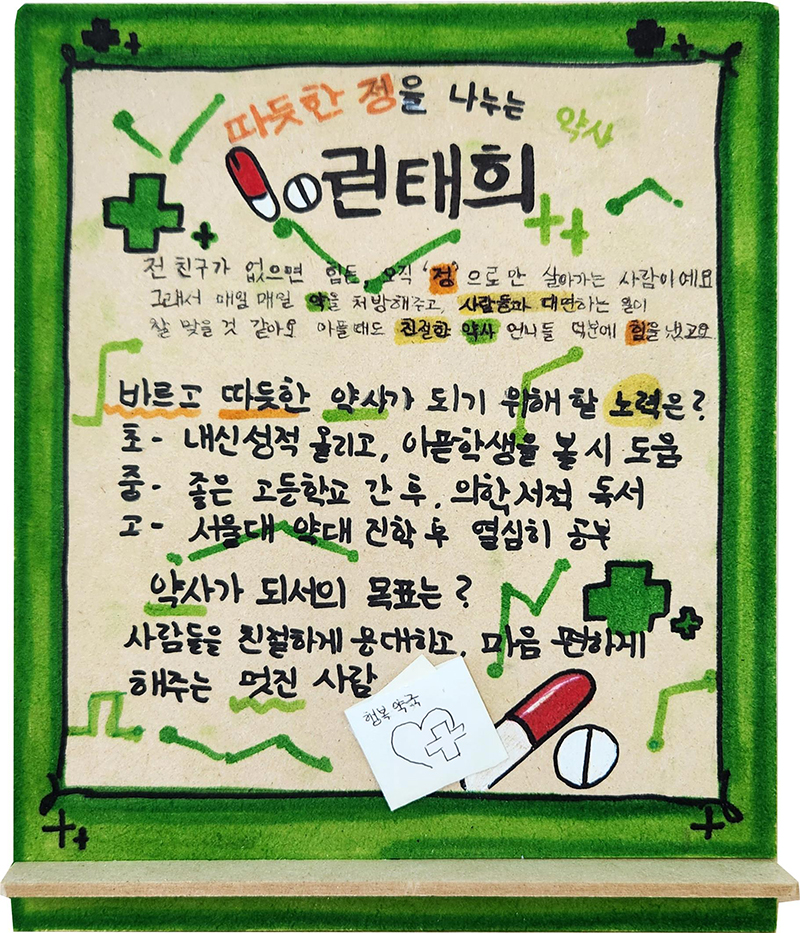 따듯한 정을 나누는
약사
권태희
전 친구가 없으면 힘든, 오직 '정'으로만 살아가는 사람이에요
그래서 매일매일 약을 처방해주고, 사람들과 대면하는 일이
잘 맞을 것 같아요 아플때도 친절한 약사 언니들 덕분에 힘을 냈고요.
바르고 따듯한 약사가 되기 위해 할 노력은?
초 - 내신성적 올리고, 아픈학생을 볼 시 도움
중 - 좋은 고등학교 간 후, 의학서적 독서
고 - 서울대 약대 진학 후 열심히 공부
약사가 되서의 목표는?
사람들을 친절하게 응대하고, 마음 편하게
해주는 멋진 사람
행복 약국